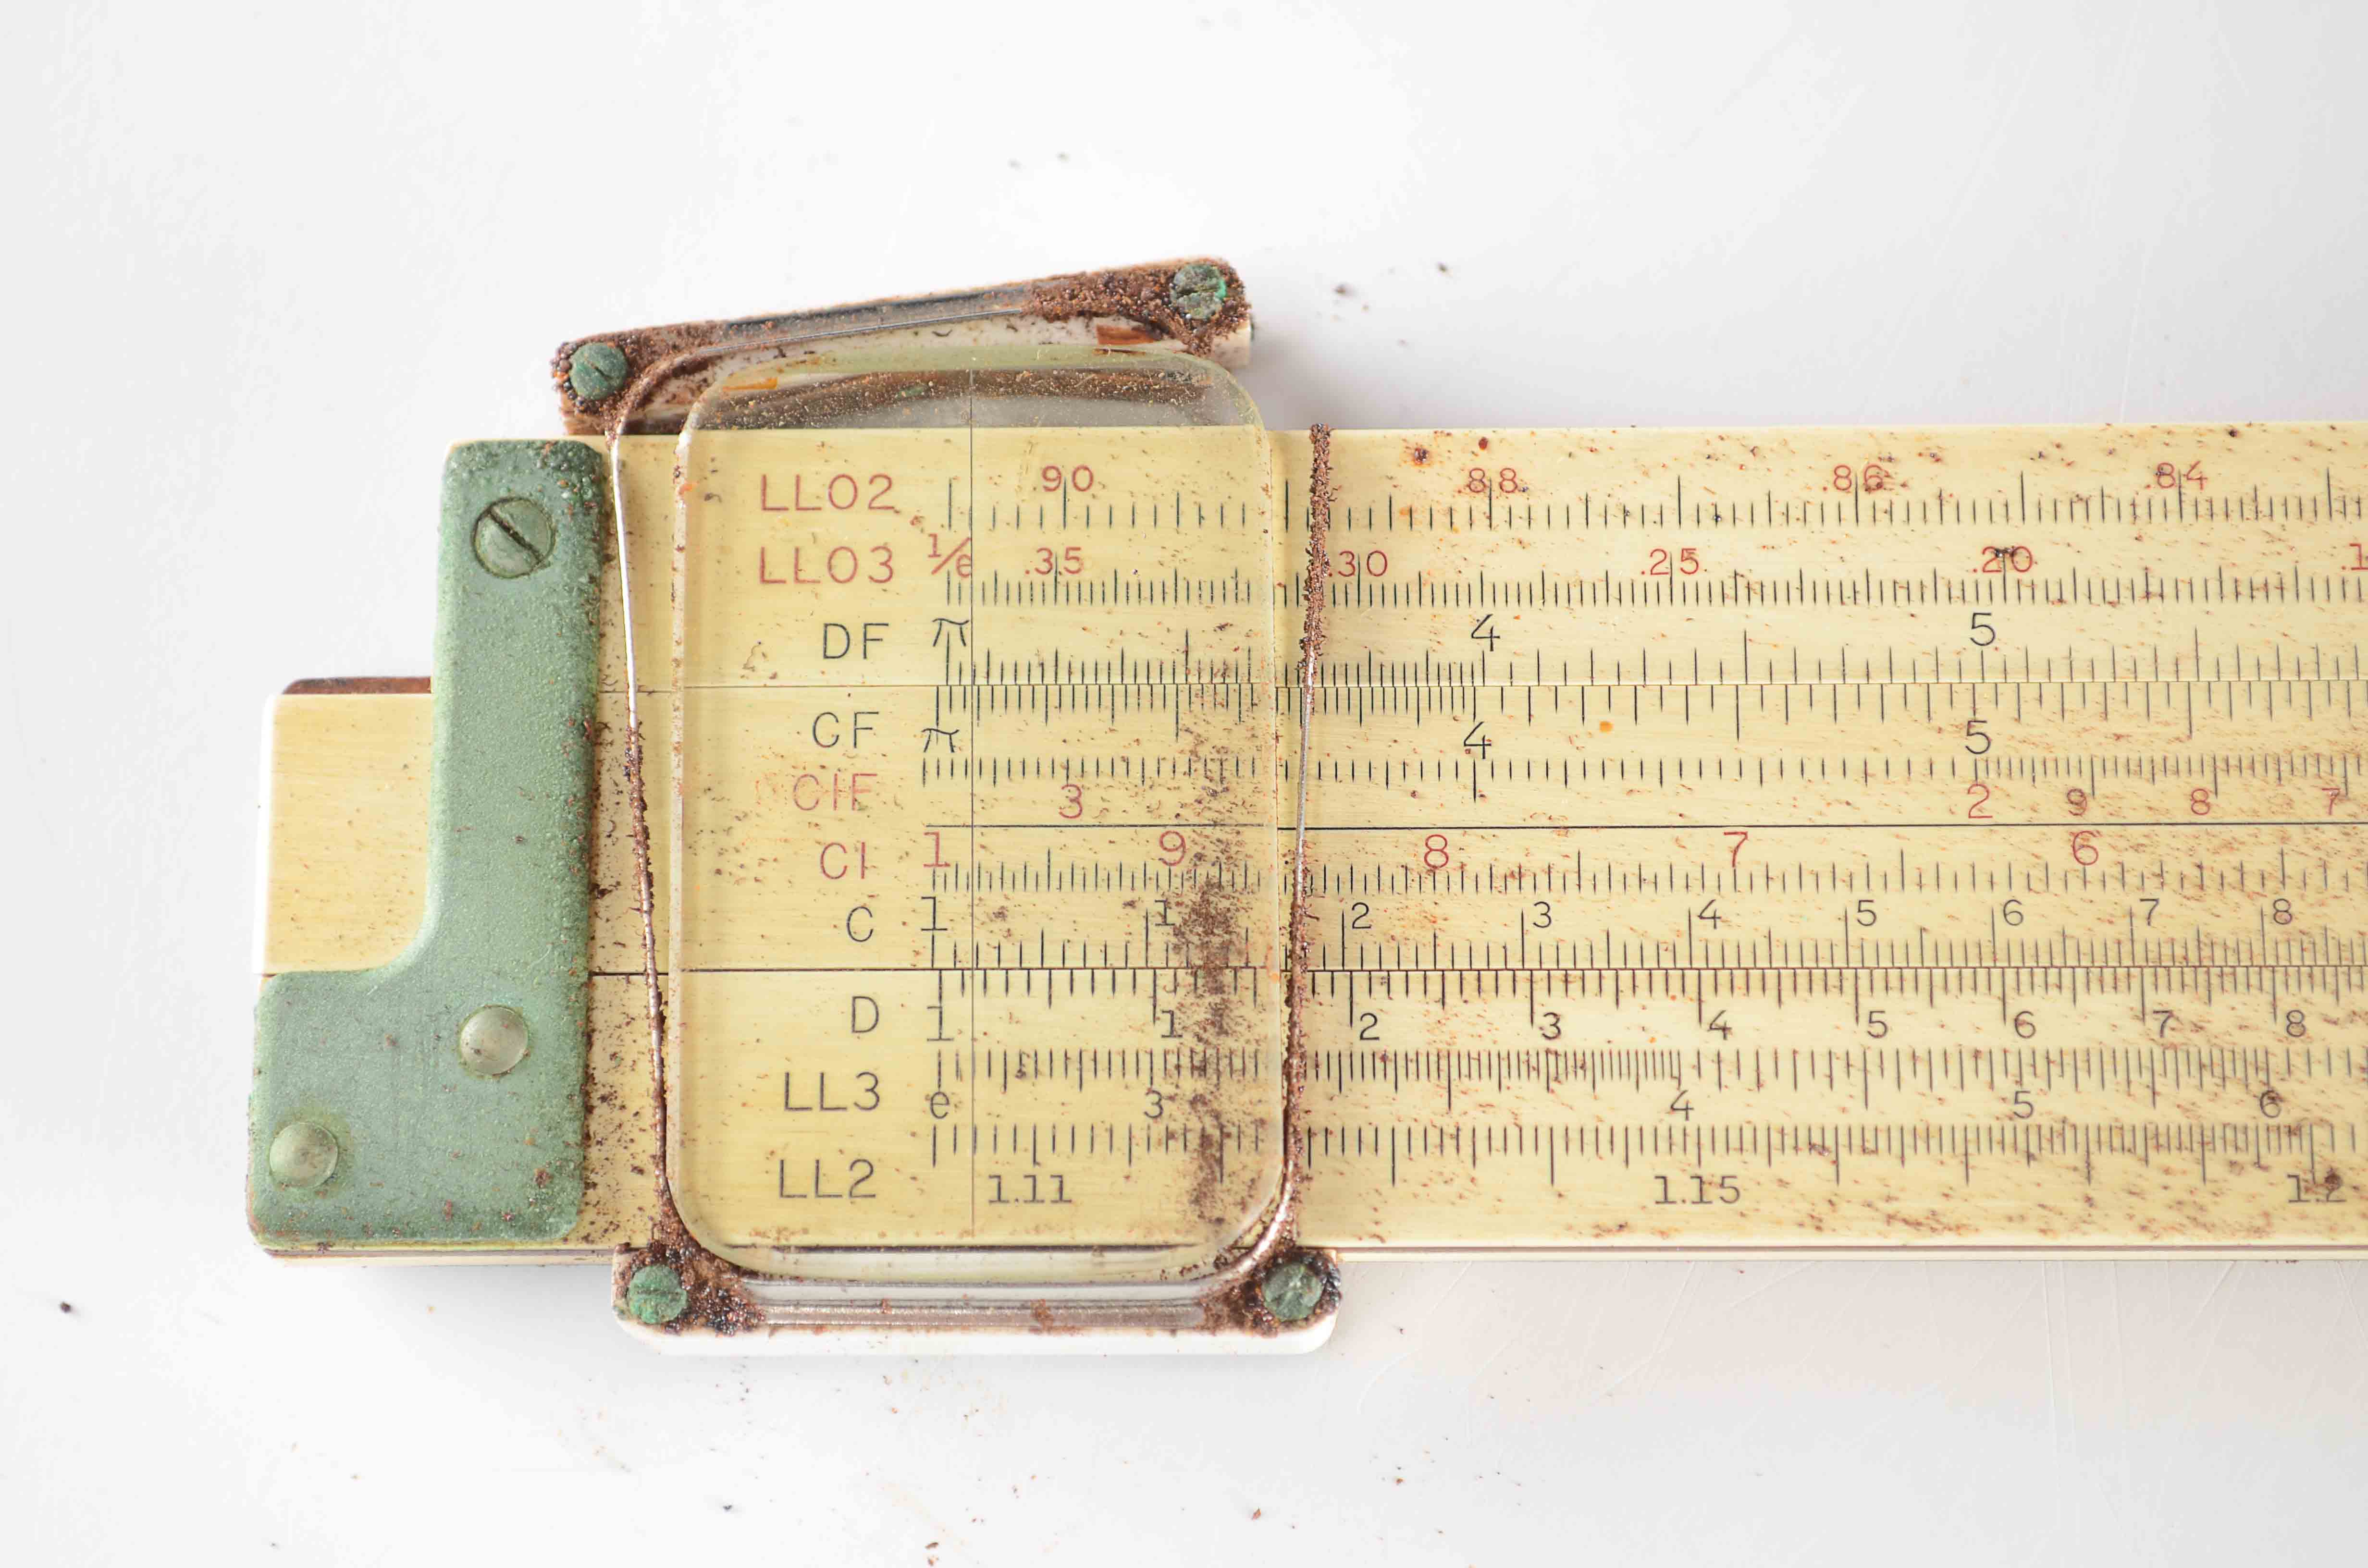 LL02 .90 .88 .86 .84
LL03 1/e .35 .30 .25 .20 .1
DF π 4 5
CF π 4 5
CIF 3 2 9 8 7
CI 1 9 8 7 6
C 1 1 2 3 4 5 6 7 8
D 1 1 2 3 4 5 6 7 8
LL3 e 3 4 5 6
LL2 1.11 1.15 1.2